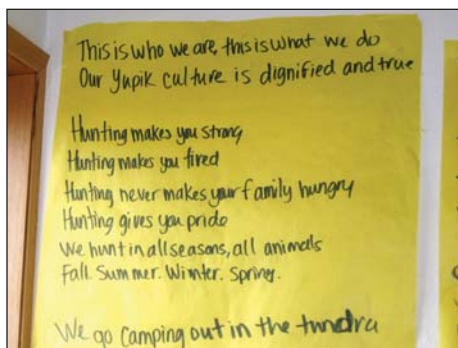 This is who we are, this is what we do
Our Yupik culture is dignified and true
Hunting makes you strong
Hunting makes you tired
Hunting never makes your family hungry
Hunting gives you pride
We hunt in all seasons, all animals
Fall. Summer. Winter. Spring.
We go camping out in the tundra